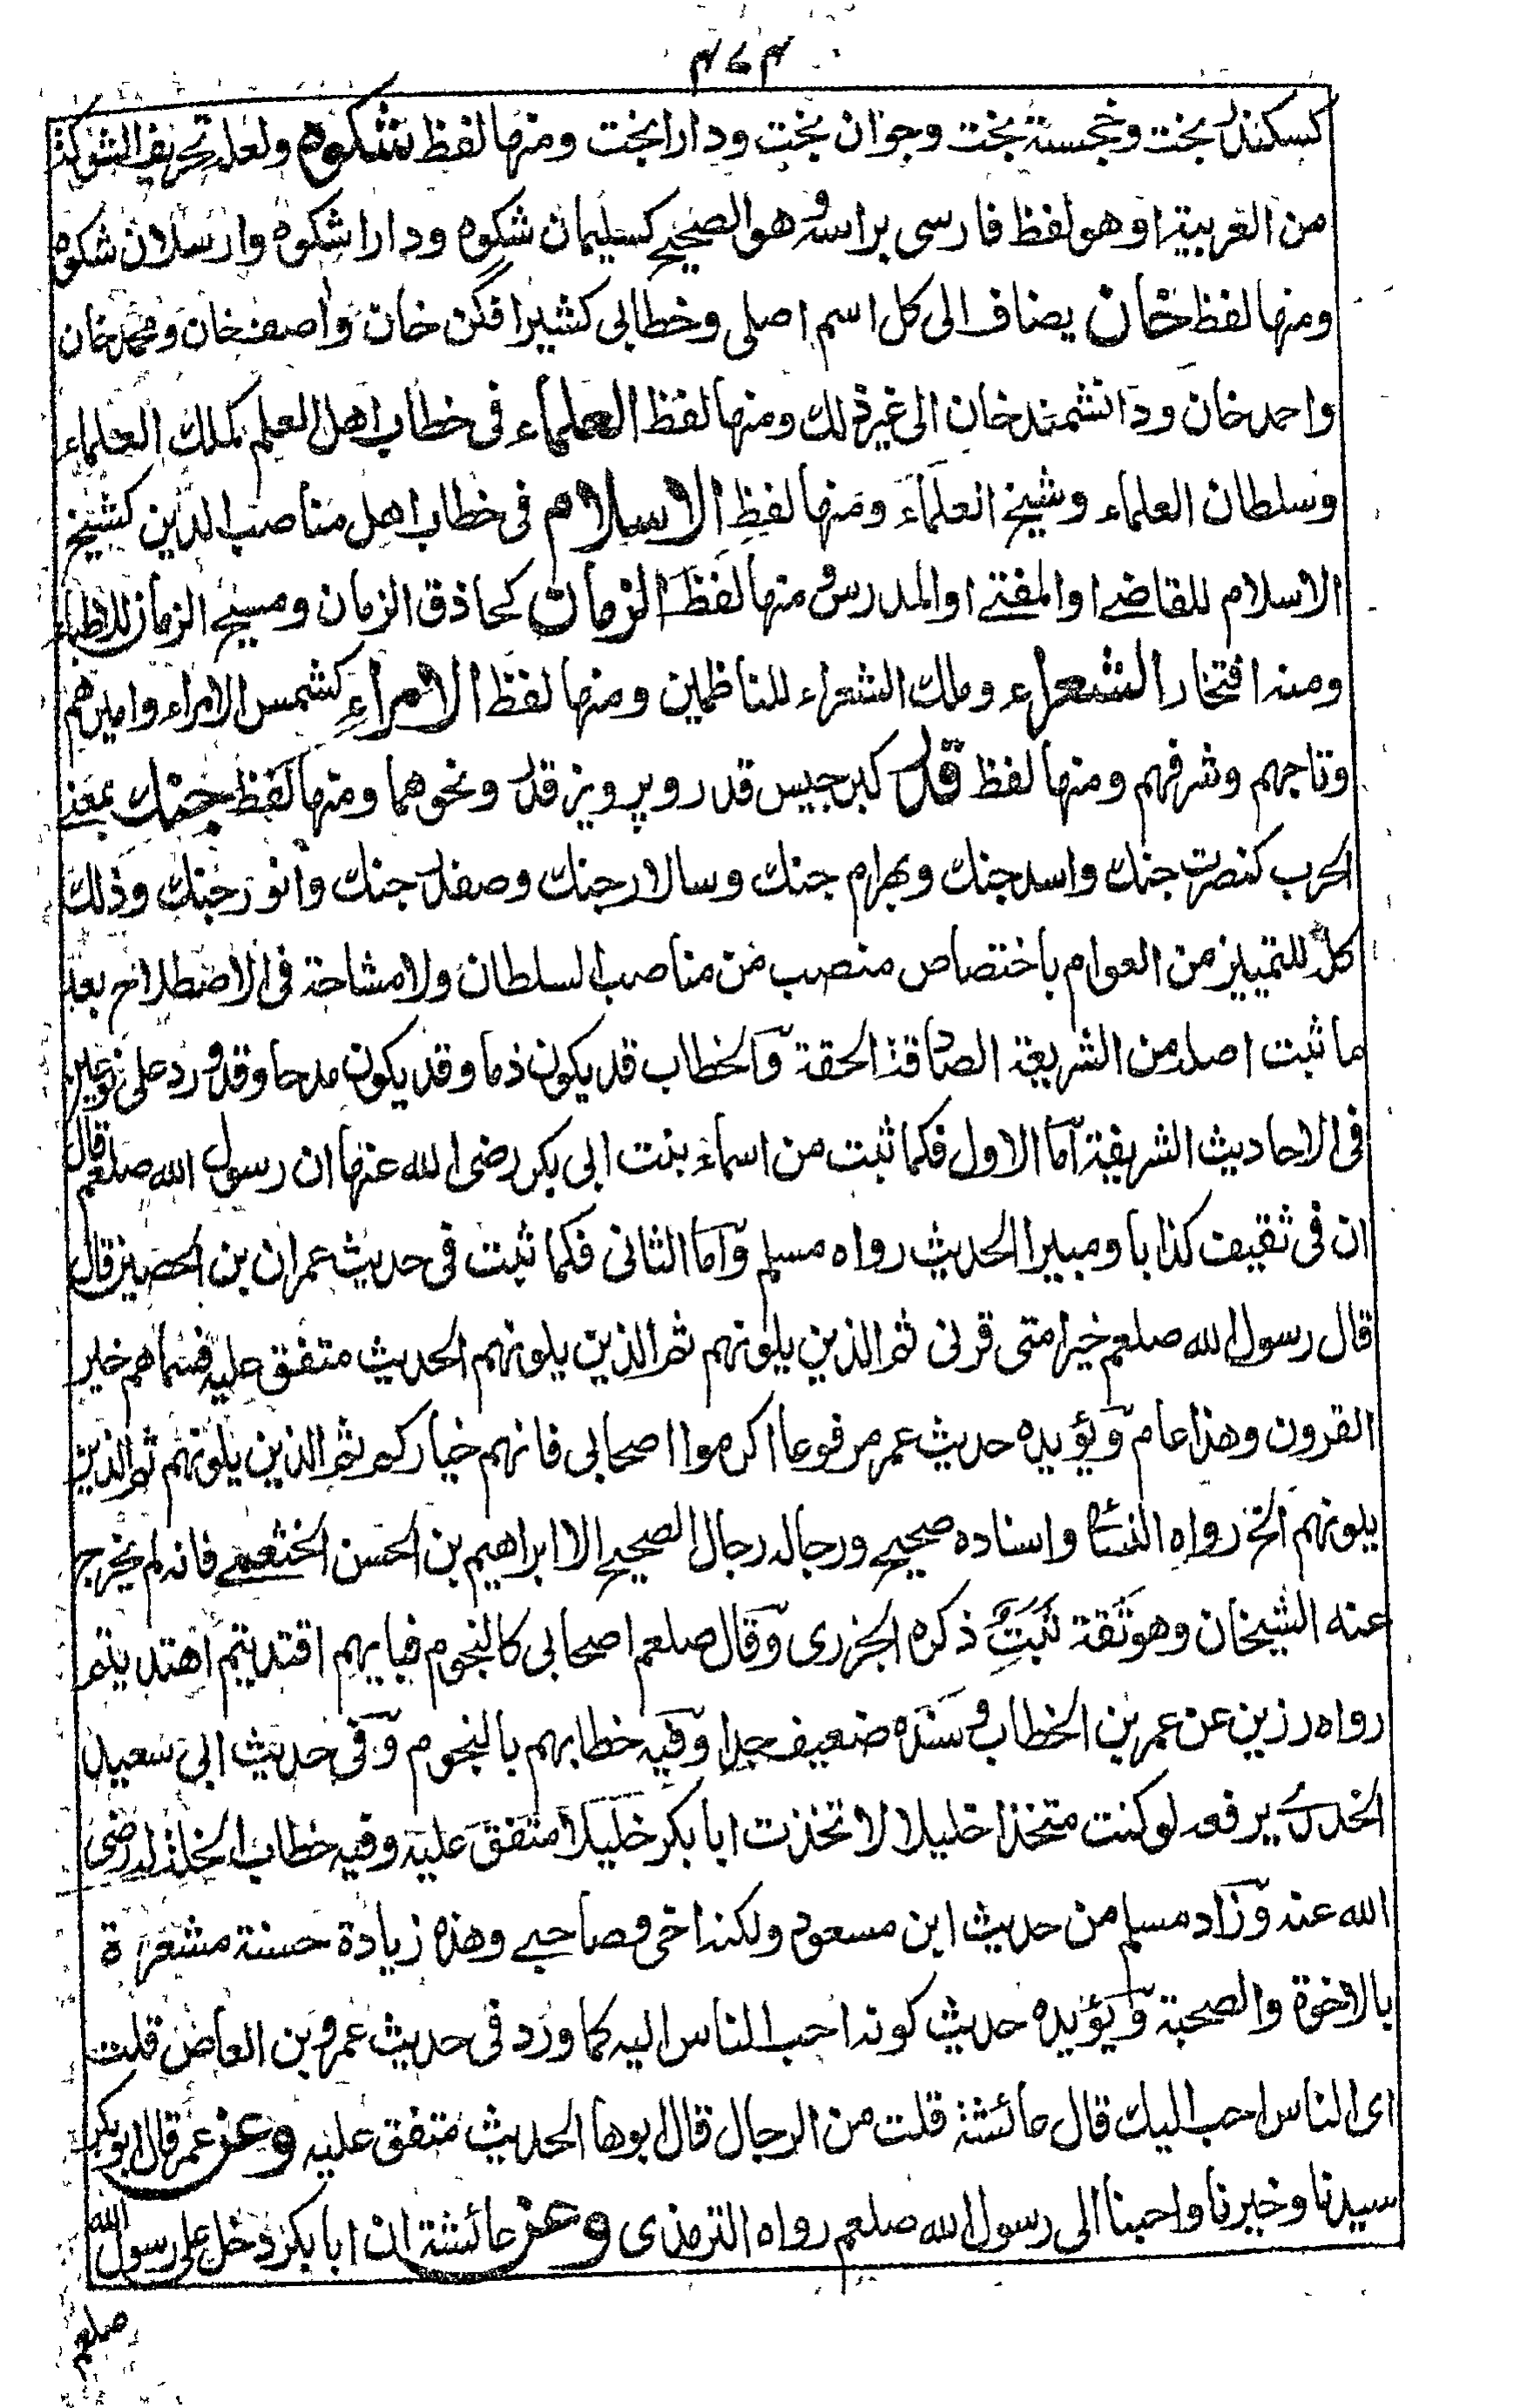 ٤٧٤
كسكندر بخت وخجسته بخت وجوان بخت ودارا بخت ومنها لفظ شكوه ولعله تحريف الشوكة
من العربية او هو لفظ فارسى براسه وهو الصحيح كسليمان شكوه ودارا شكوه وارسلان شكوه
ومنها لفظ خان يضاف الى كل اسم اصلى وخطابى كشيرافگن خان واصف خان ومحمد خان
واحمد خان ودانشمند خان الى غير ذلك ومنها لفظ العلماء فى خطاب اهل العلم كملك العلماء
وسلطان العلماء وشيخ العلماء ومنها لفظ الاسلام فى خطاب اهل مناصب الدين كشيخ
الاسلام للقاضے او المفتے او المدرس ومنها لفظ الزمان كحاذق الزمان ومسيح الزمان للاطباء
ومنه افتخار الشعراء وملك الشعراء للناظمين ومنها لفظ الامراء كشمس الامراء واميرهم
وتاجهم وشرفهم ومنها لفظ قدر كبرجيس قدر وپرويز قدر ونحوهما ومنها لفظ جنك بمعنے
الحرب كنصرت جنك واسد جنك وبهرام جنك وسالار جنك وصفدر جنك وانور جنك وذلك
كله للتمييز من العوام باختصاص منصب من مناصب السلطان ولا مشاحة فى الاصطلاح بعد
ما ثبت اصله من الشريعة الصادقة الحقة والخطاب قد يكون ذما وقد يكون مدحا وقد ورد على نوعين
فى الاحاديث الشريفة اما الاول فكما ثبت من اسماء بنت ابى بكر رضى الله عنها ان رسول الله صلعم قال
ان فى ثقيف كذابا ومبيرا الحديث رواه مسلم واما الثانى فكما ثبت فى حديث عمران بن الحصين قال
قال رسول الله صلعم خير امتى قرنى ثم الذين يلونهم ثم الذين يلونهم الحديث متفق عليه فسماهم خير
القرون وهذا عام ويؤيده حديث عمر مرفوعا اكرموا اصحابى فانهم خياركم ثم الذين يلونهم ثم الذين
يلونهم الخ رواه النسائى واسناده صحيح ورجاله رجال الصحيح الا ابراهيم بن الحسن الخثعمے فانه لم يخرج
عنه الشيخان وهو ثقة ثبت ذكره الجزرى وقال صلعم اصحابى كالنجوم فبايهم اقتديتم اهتديتم
رواه رزين عن عمر بن الخطاب وسنده ضعيف جدا وفيه خطابهم بالنجوم وفى حديث ابى سعيد
الخدرى يرفعه لو كنت متخذا خليلا لاتخذت ابا بكر خليلا متفق عليه وفيه خطاب الخلة له رضى
الله عنه وزاد مسلم من حديث ابن مسعود ولكنه اخى وصاحبے وهذه زيادة حسنة مشعرة
بالاخوة والصحبة ويؤيده حديث كونه احب الناس اليه كما ورد فى حديث عمرو بن العاص قلت
اى الناس احب اليك قال عائشة قلت من الرجال قال ابوها الحديث متفق عليه وعن عمر قال ابو بكر
سيدنا وخيرنا واحبنا الى رسول الله صلعم رواه الترمذى وعن عائشة ان ابا بكر دخل على رسول الله
صلعم